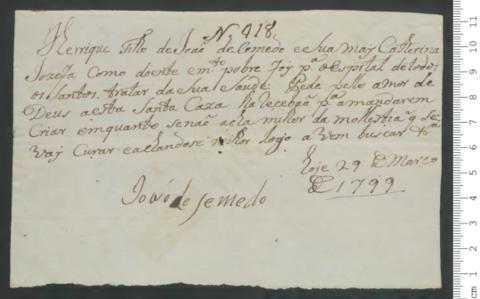 N. 418.
Henrique Filho de João de Cemedo e Sua May Catherina
Jozefa Como doente em.to pobre Foy p.ª o Espital de todos
os Santos. tratar da Sua Saude. Pede pello amor de
Deus a esta Santa Caza Ha recebão p.ª a mandarem
Criar emquanto senão acha milhor da molestia q Se
Vay Curar e achandose milhor logo a Vem buscar
Hoje 29 de Março
de 1799
João de Semedo